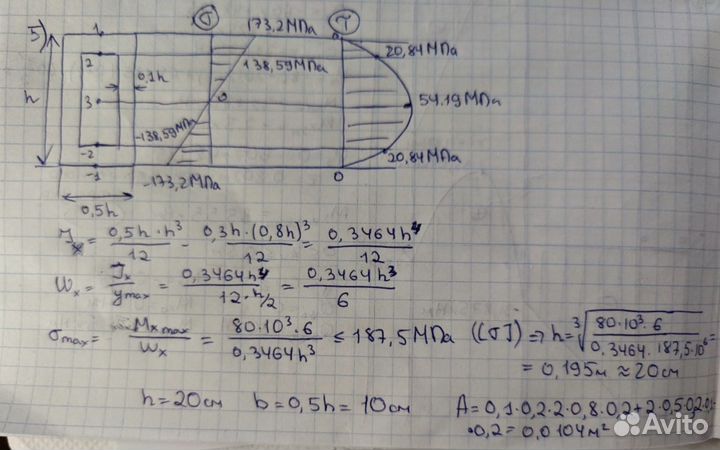 5) 1 σ 173,2МПа τ 0
2 20,84МПа
138,59МПа
0,1h
h 3 0 54.19МПа
-138,59МПа
-2 20,84МПа
-1 -173,2МПа 0
0,5h
Jx = 0,5h·h³/12 - 0,3h·(0,8h)³/12 = 0,3464h⁴/12
Wx = Jx/ymax = 0,3464h⁴/12·h/2 = 0,3464h³/6
σmax = Mxmax/Wx = 80·10³·6/0,3464h³ ≤ 187,5МПа ([σ]) ⇒ h = ∛80·10³·6/0,3464·187,5·10⁶ =
= 0,195м ≈ 20см
h = 20см b = 0,5h = 10см A = 0,1·0,2·2·0,8·0,2+2·0,5·0,2·0,1·
·0,2 = 0,0104м²
Avito